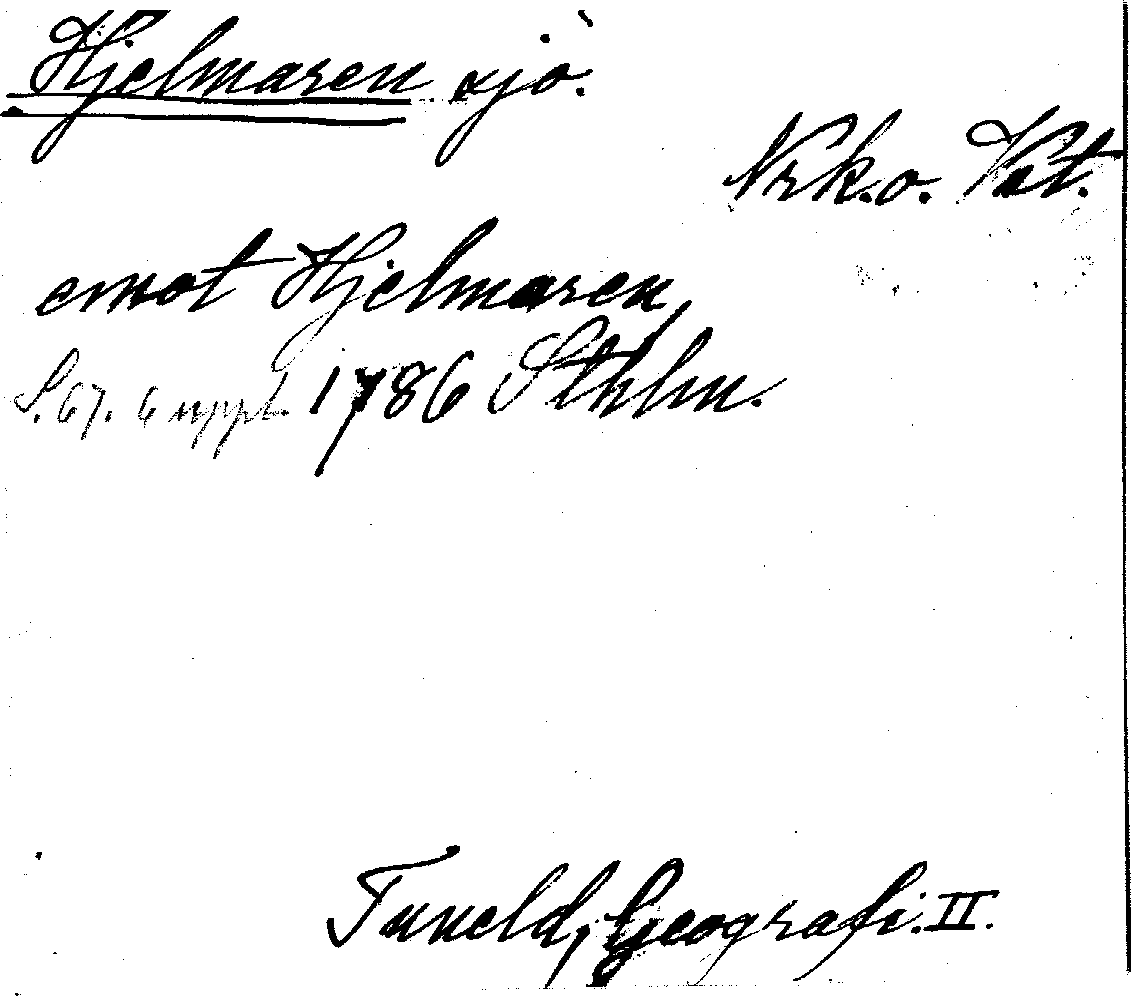 Hjelmaren sjö.
Nrk. o. Vst.
emot Hjelmaren,
S. 67. 6 uppl. 1786 Sthlm.
Tuneld, Geografi. II.